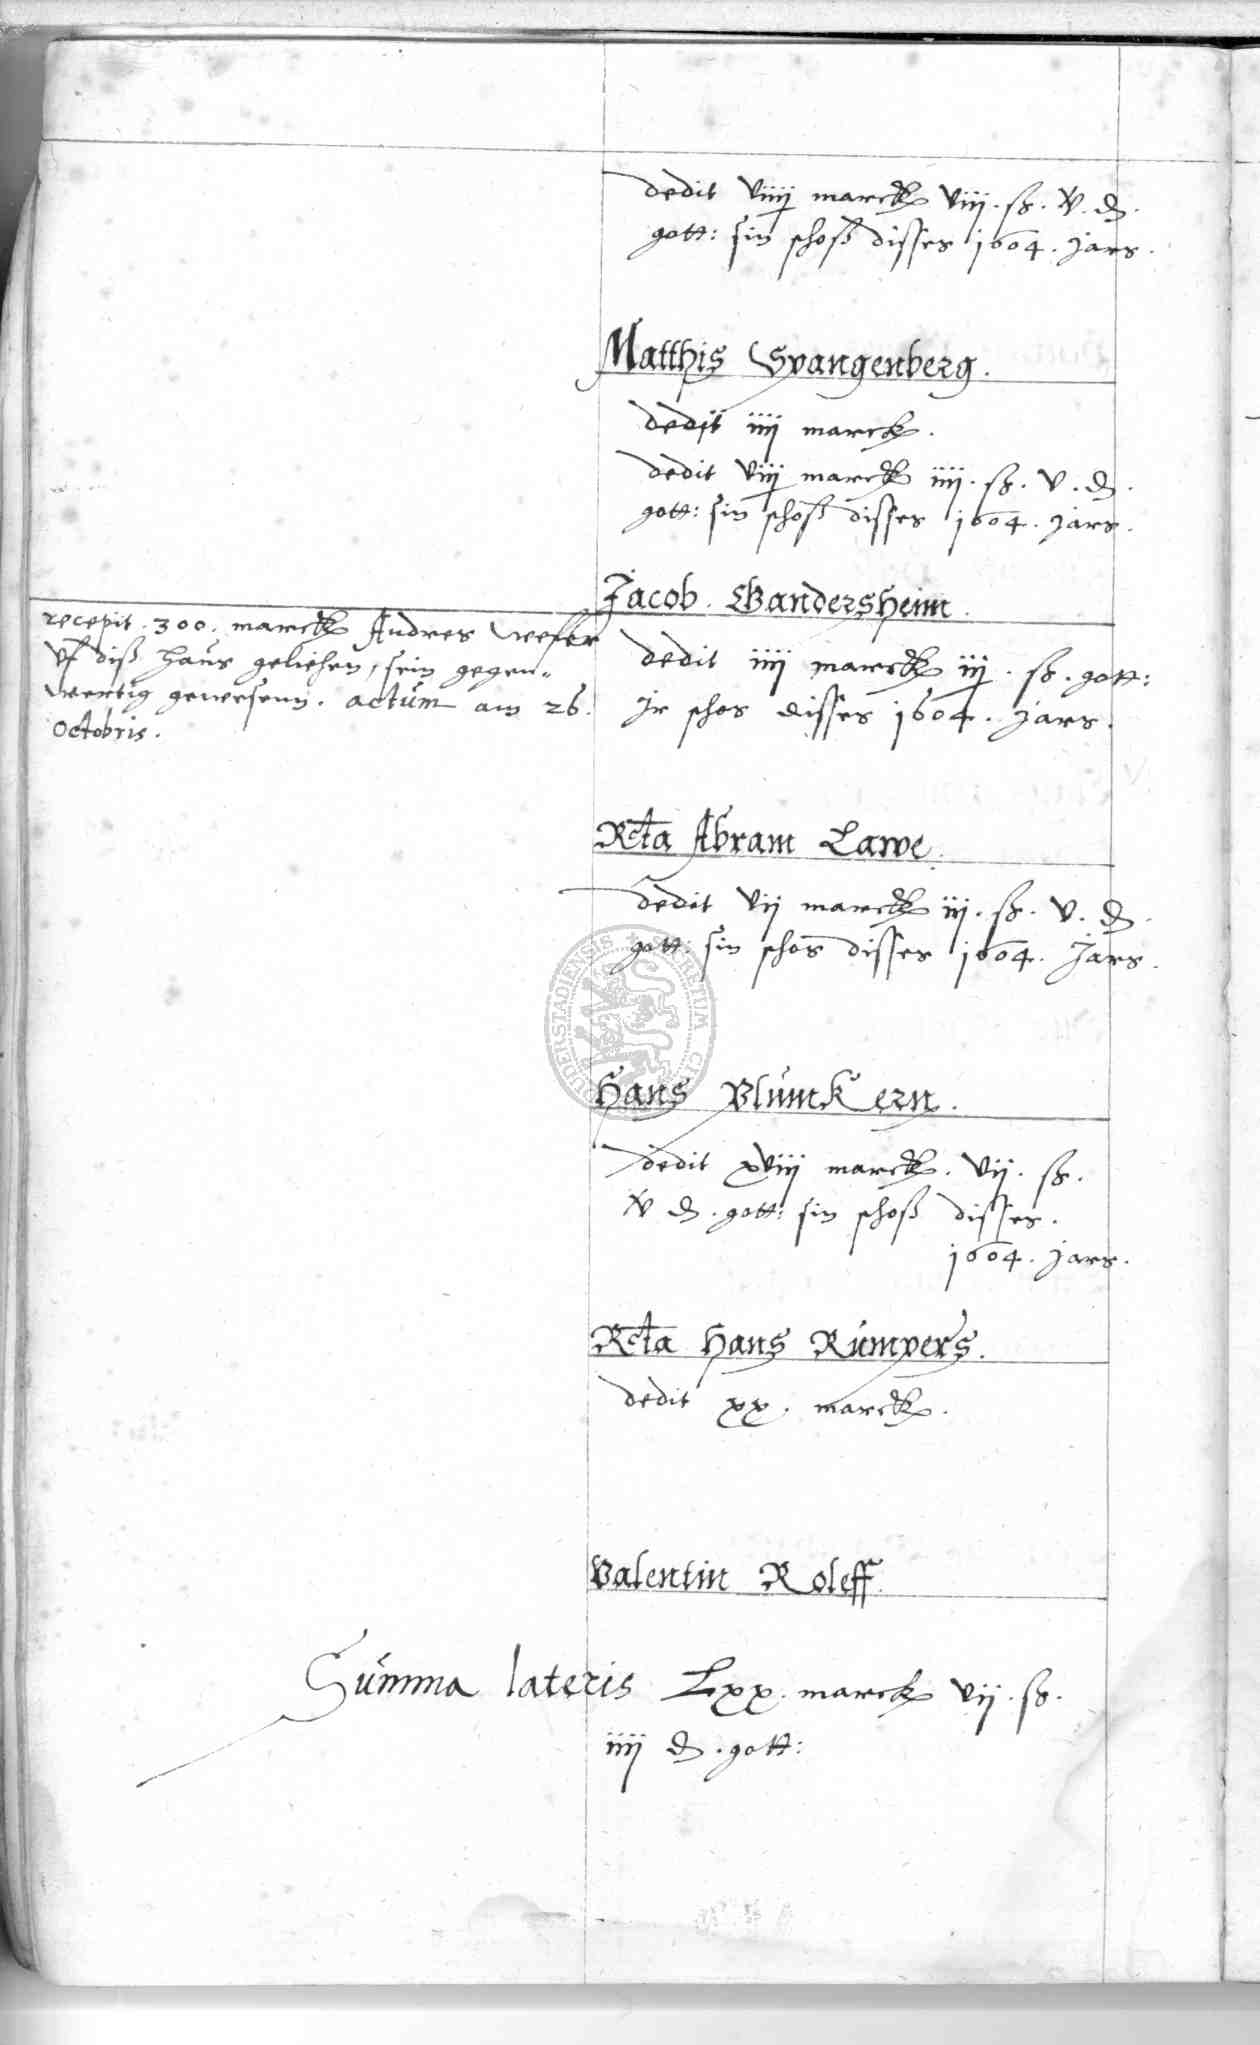 dedit viiij marck viij. ß. v. d.
gott: sin schoß disses 1604. Jars.
Matthis Spangenberg.
dedit iiij marck.
dedit viij marck iiij. ß. v. d.
gott: sin schoß disses 1604. Jars.
Jacob. Gandersheim.
recepit. 300. marck Andres Weser
vf diß haus geliehen, sein gegen-
wertig gewesenn. actum am 26.
Octobris.
dedit iiij marck iij. ß. gott:
Jr schos disses 1604. Jars.
Rcta Abram Lawe.
dedit vij marck iij. ß. v. d.
gott: sin schos disses 1604. Jars.
Hans Blumkern.
dedit xviij marck. vij. ß.
v d. gott: sin schoß disses.
1604. Jars.
Rcta Hans Rumpers.
dedit xx. marck.
Valentin Roleff.
Summa lateris Lxx. marck vij. ß.
iiij d. gott: